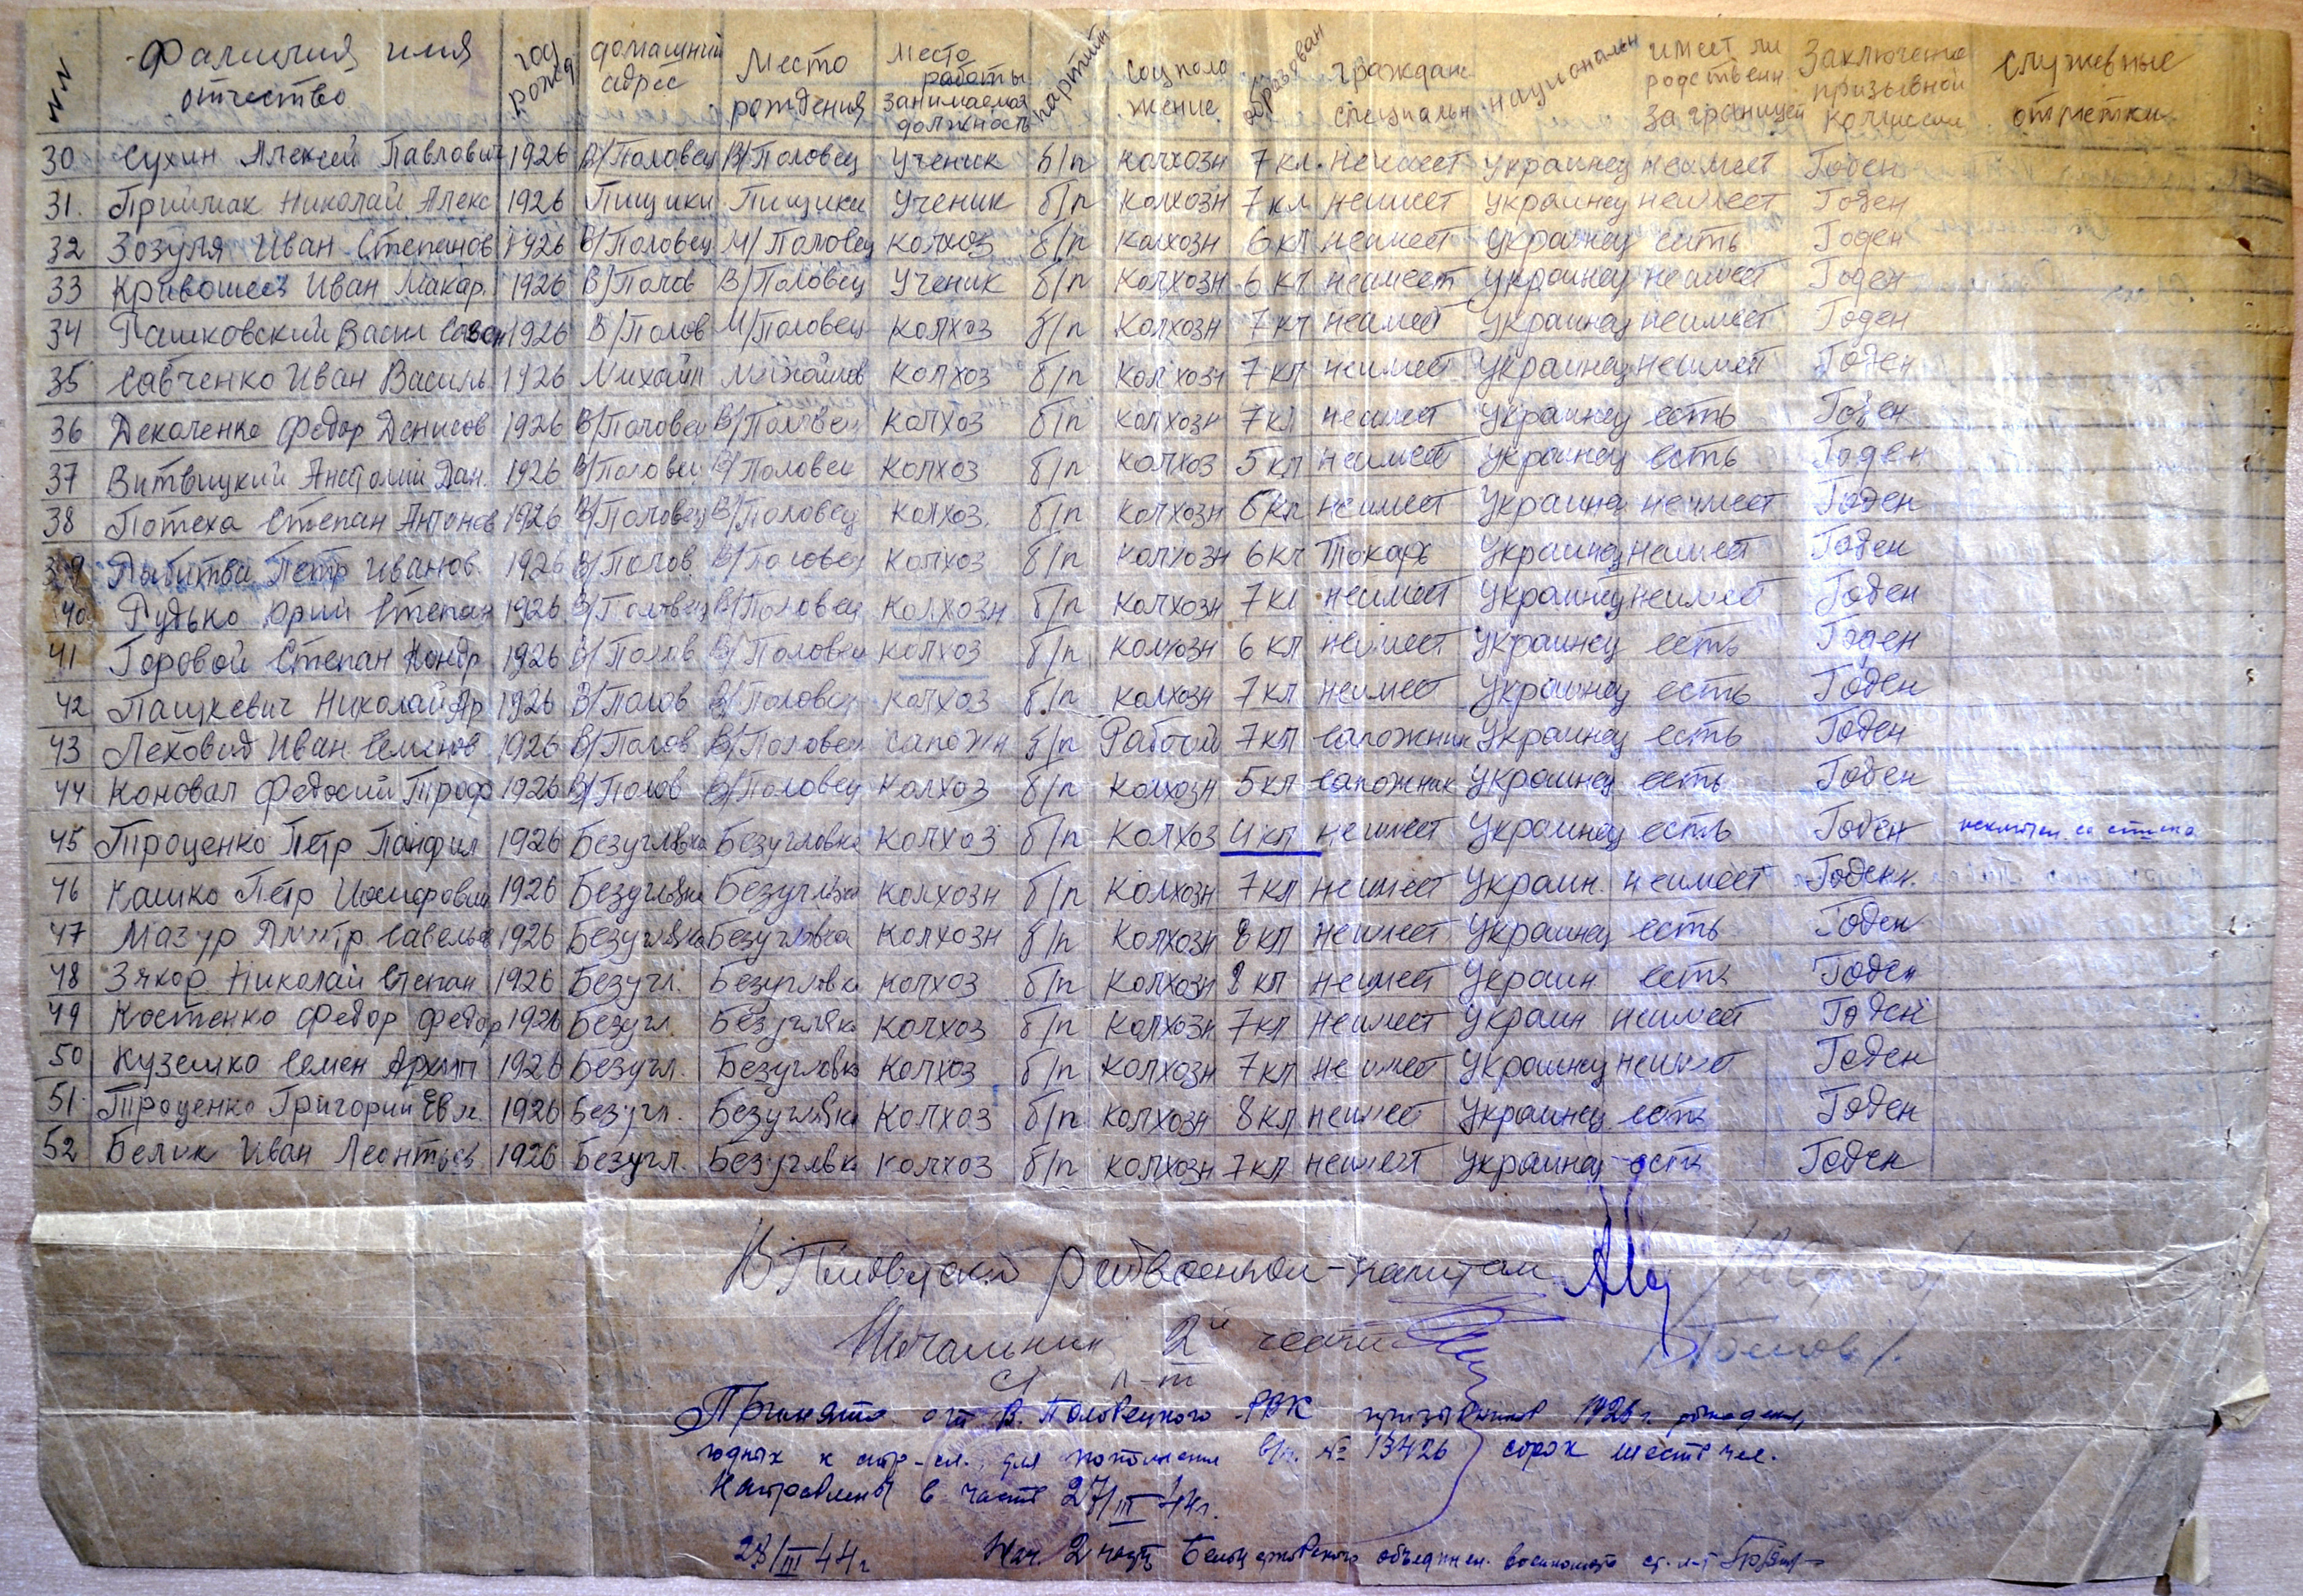 NN Фамилия имя отчество год рожд домашний адрес Место рождения Место работы занимаемая должность партийн Соц положение образован граждан специальн национальн имеет ли родствен за границей Заключение призывной комиссии служебные отметки
30 Сухин Алексей Павлович 1926 В/Половец В/Половец ученик б/п колхозн 7 кл неимеет украинец неимеет Годен
31. Приймак Николай Алекс 1926 Пищики Пищики ученик б/п колхозн 7 кл неимеет украинец неимеет Годен
32 Зозуля Иван Степанов 1926 В/Половец М/Половец колхоз б/п колхозн 6 кл неимеет украинец есть Годен
33 Кривошеев Иван Макар. 1926 В/Полов В/Половец ученик б/п колхозн 6 кл неимеет украинец неимеет Годен
34 Рашковский Васил Савон 1926 В/Полов М/Половец колхоз б/п колхозн 7 кл неимеет украинец неимеет Годен
35 Савченко Иван Василь 1926 Михайл Михайлов колхоз б/п колхозн 7 кл неимеет украинец неимеет Годен
36 Декаленко Федор Денисов 1926 В/Половец В/Половец колхоз б/п колхозн 7 кл неимеет украинец есть Годен
37 Витвицкий Анатолий Дан. 1926 В/Половец В/Половец колхоз б/п колхоз 5 кл неимеет украинец есть Годен
38 Потеха Степан Антонов 1926 В/Половец В/Половец колхоз. б/п колхозн 6 кл неимеет украинец неимеет Годен
39 Петр Иванов. 1926 В/Полов. В/Половец колхоз б/п колхозн 6 кл Токарь украинец неимеет Годен
40 Рудько Юрий Степан 1926 В/Половец В/Половец колхозн б/п колхозн 7 кл неимеет украинец неимеет Годен
41 Горовой Степан Кондр 1926 В/Полов В/Половец колхоз б/п колхозн 6 кл неимеет украинец есть Годен
42 Пашкевич Николай Ар 1926 В/Полов В/Половец колхоз б/п колхозн 7 кл неимеет украинец есть Годен
43 Леховид Иван Семенов 1926 В/Полов В/Половец сапожн б/п Рабочий 7 кл сапожник украинец есть Годен
44 Коновал Федосий Троф 1926 В/Полов В/Половец колхоз б/п колхозн 5 кл сапожник украинец есть Годен
45 Троценко Петр Панфил 1926 Безугловка Безугловка колхоз б/п колхоз 4 кл неимеет украинец есть Годен исключен со списка
46 Кашко Петр Иосифович 1926 Безугловка Безугловка колхозн б/п колхозн 7 кл неимеет Украин. неимеет Годен
47 Мазур Дмитр Савельев 1926 Безугловка Безугловка колхозн б/п колхозн 8 кл неимеет украинец есть Годен
48 Зякор Николай Степан 1926 Безугл. Безугловка колхоз б/п колхозн 8 кл неимеет Украин. есть Годен
49 Костенко Федор Федор 1926 Безугл. Безугловка колхоз б/п колхозн 7 кл неимеет украин неимеет Годен
50 Куземко Семен Архип 1926 Безугл. Безугловка колхоз б/п колхозн 7 кл неимеет украинец неимеет Годен
51. Троценко Григорий Евм. 1926 Безугл. Безугловка колхоз б/п колхозн 8 кл неимеет украинец есть Годен
52 Белик Иван Леонтьев 1926 Безугл. Безугловка колхоз б/п колхозн 7 кл неимеет украинец есть Годен
В Половецкий Райвоенком - капитан
Начальник 2й части
ст л-т
Принято от В. Половецкого РВК призывников 1926 г. рождения,
годных к стр-сл. для пополнения в/ч. № 13426 сорок шесть чел.
Направлены в часть 27/III 44 г.
28/III 44 г Нач. 2 части Белоцерковского объединен. военкомата ст. л-т